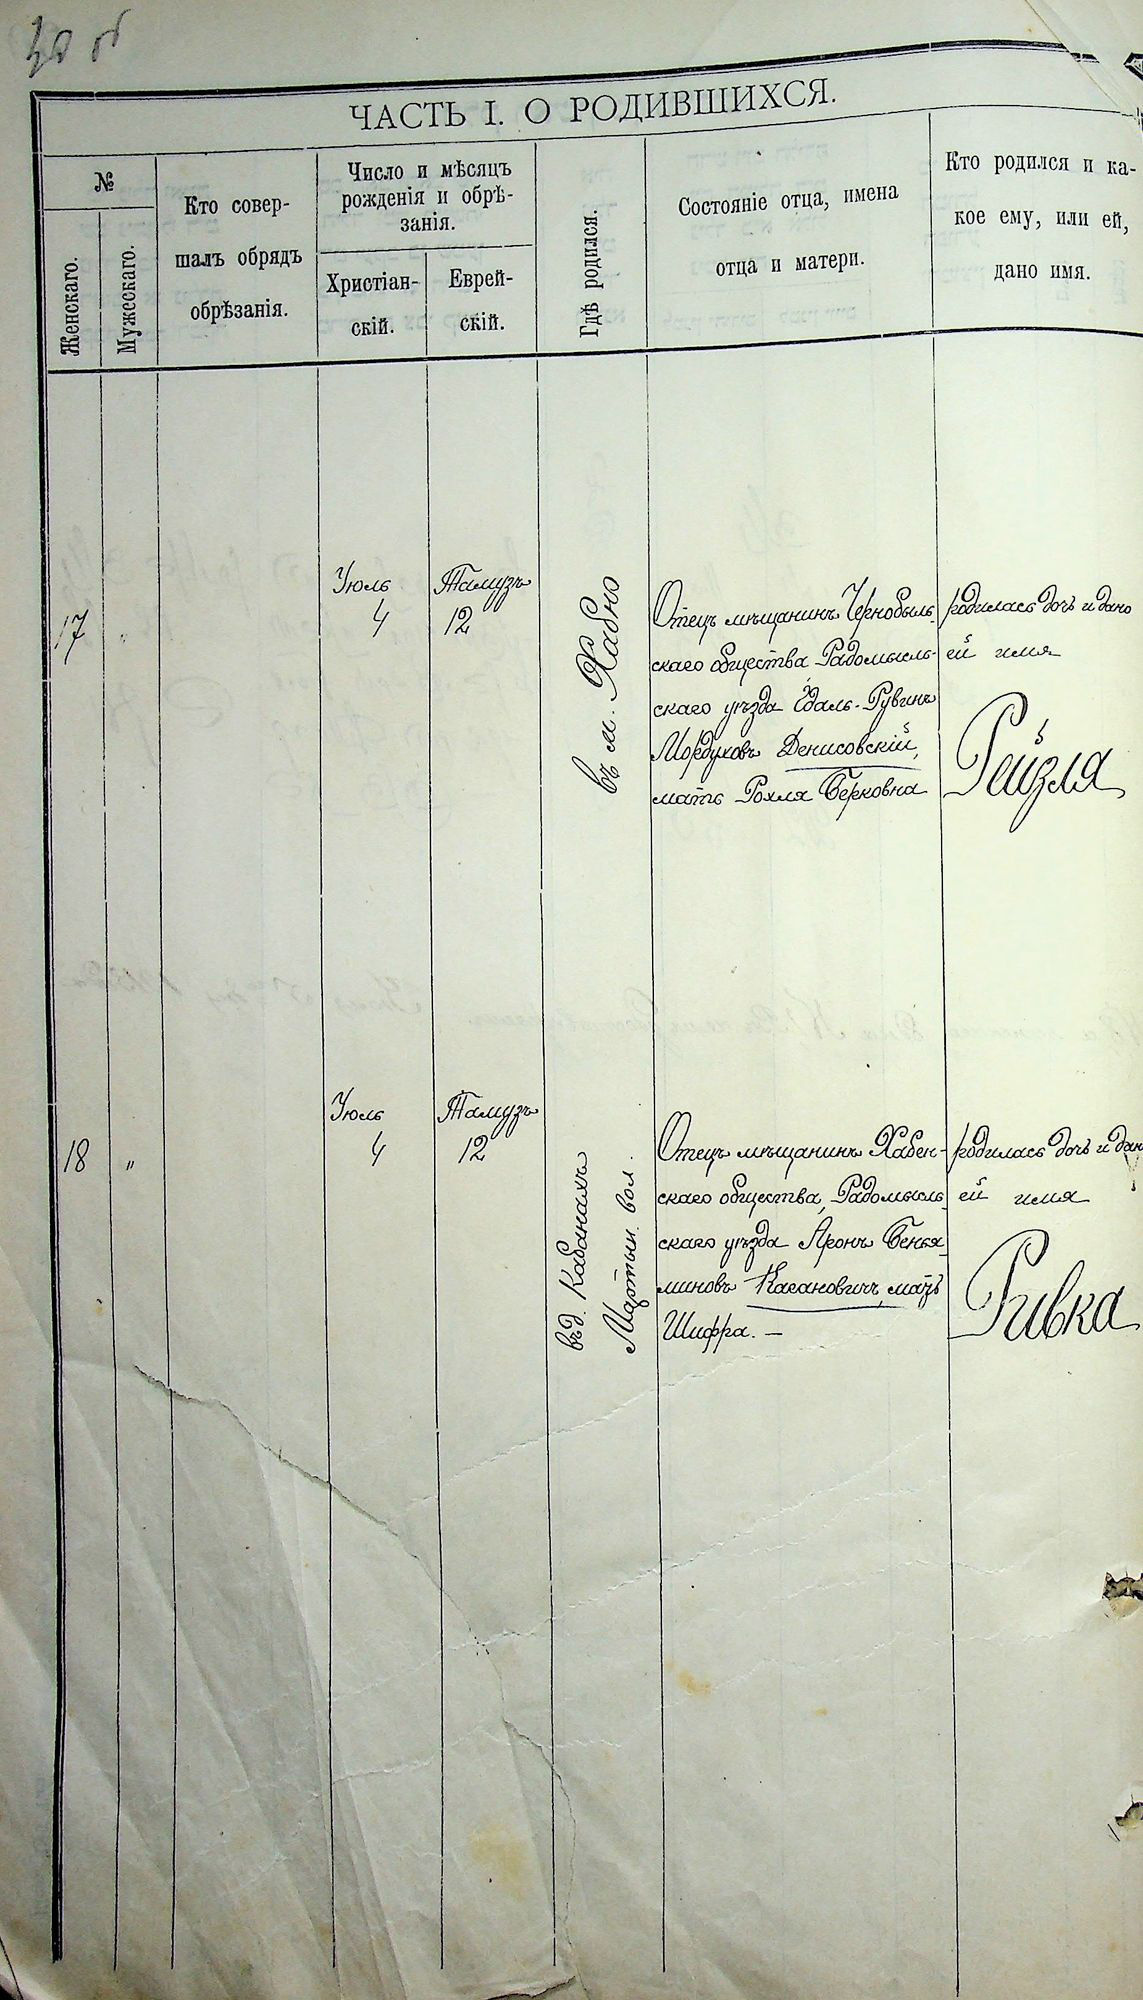 ЧАСТЬ I. О РОДИВШИХСЯ.
№
Женскаго.
Мужескаго.
Кто совер-
шалъ обрядъ
обрѣзанія.
Число и мѣсяцъ
рожденія и обрѣ-
занія.
Христіан-
скій.
Еврей-
скій.
Гдѣ родился.
Состояніе отца, имена
отца и матери.
Кто родился и ка-
кое ему, или ей,
дано имя.
17
"
Іюль
4
Тамузъ
12
въ м. Хабно
Отецъ мѣщанинъ Чернобыль-
скаго общества Радомысль-
скаго уѣзда Удаль-Рувинъ
Мордуховъ Денисовскій,
мать Рохля Берковна
родилась дочь и дано
ей имя
Рейзля
18
"
Іюль
4
Тамузъ
12
въ д. Кабанахъ
Мартын. вол.
Отецъ мѣщанинъ Хабен-
скаго общества, Радомысль-
скаго уѣзда Аронъ Бенья-
миновъ Кагановичъ, мать
Шифра. —
родилась дочь и дан
ей имя
Ривка